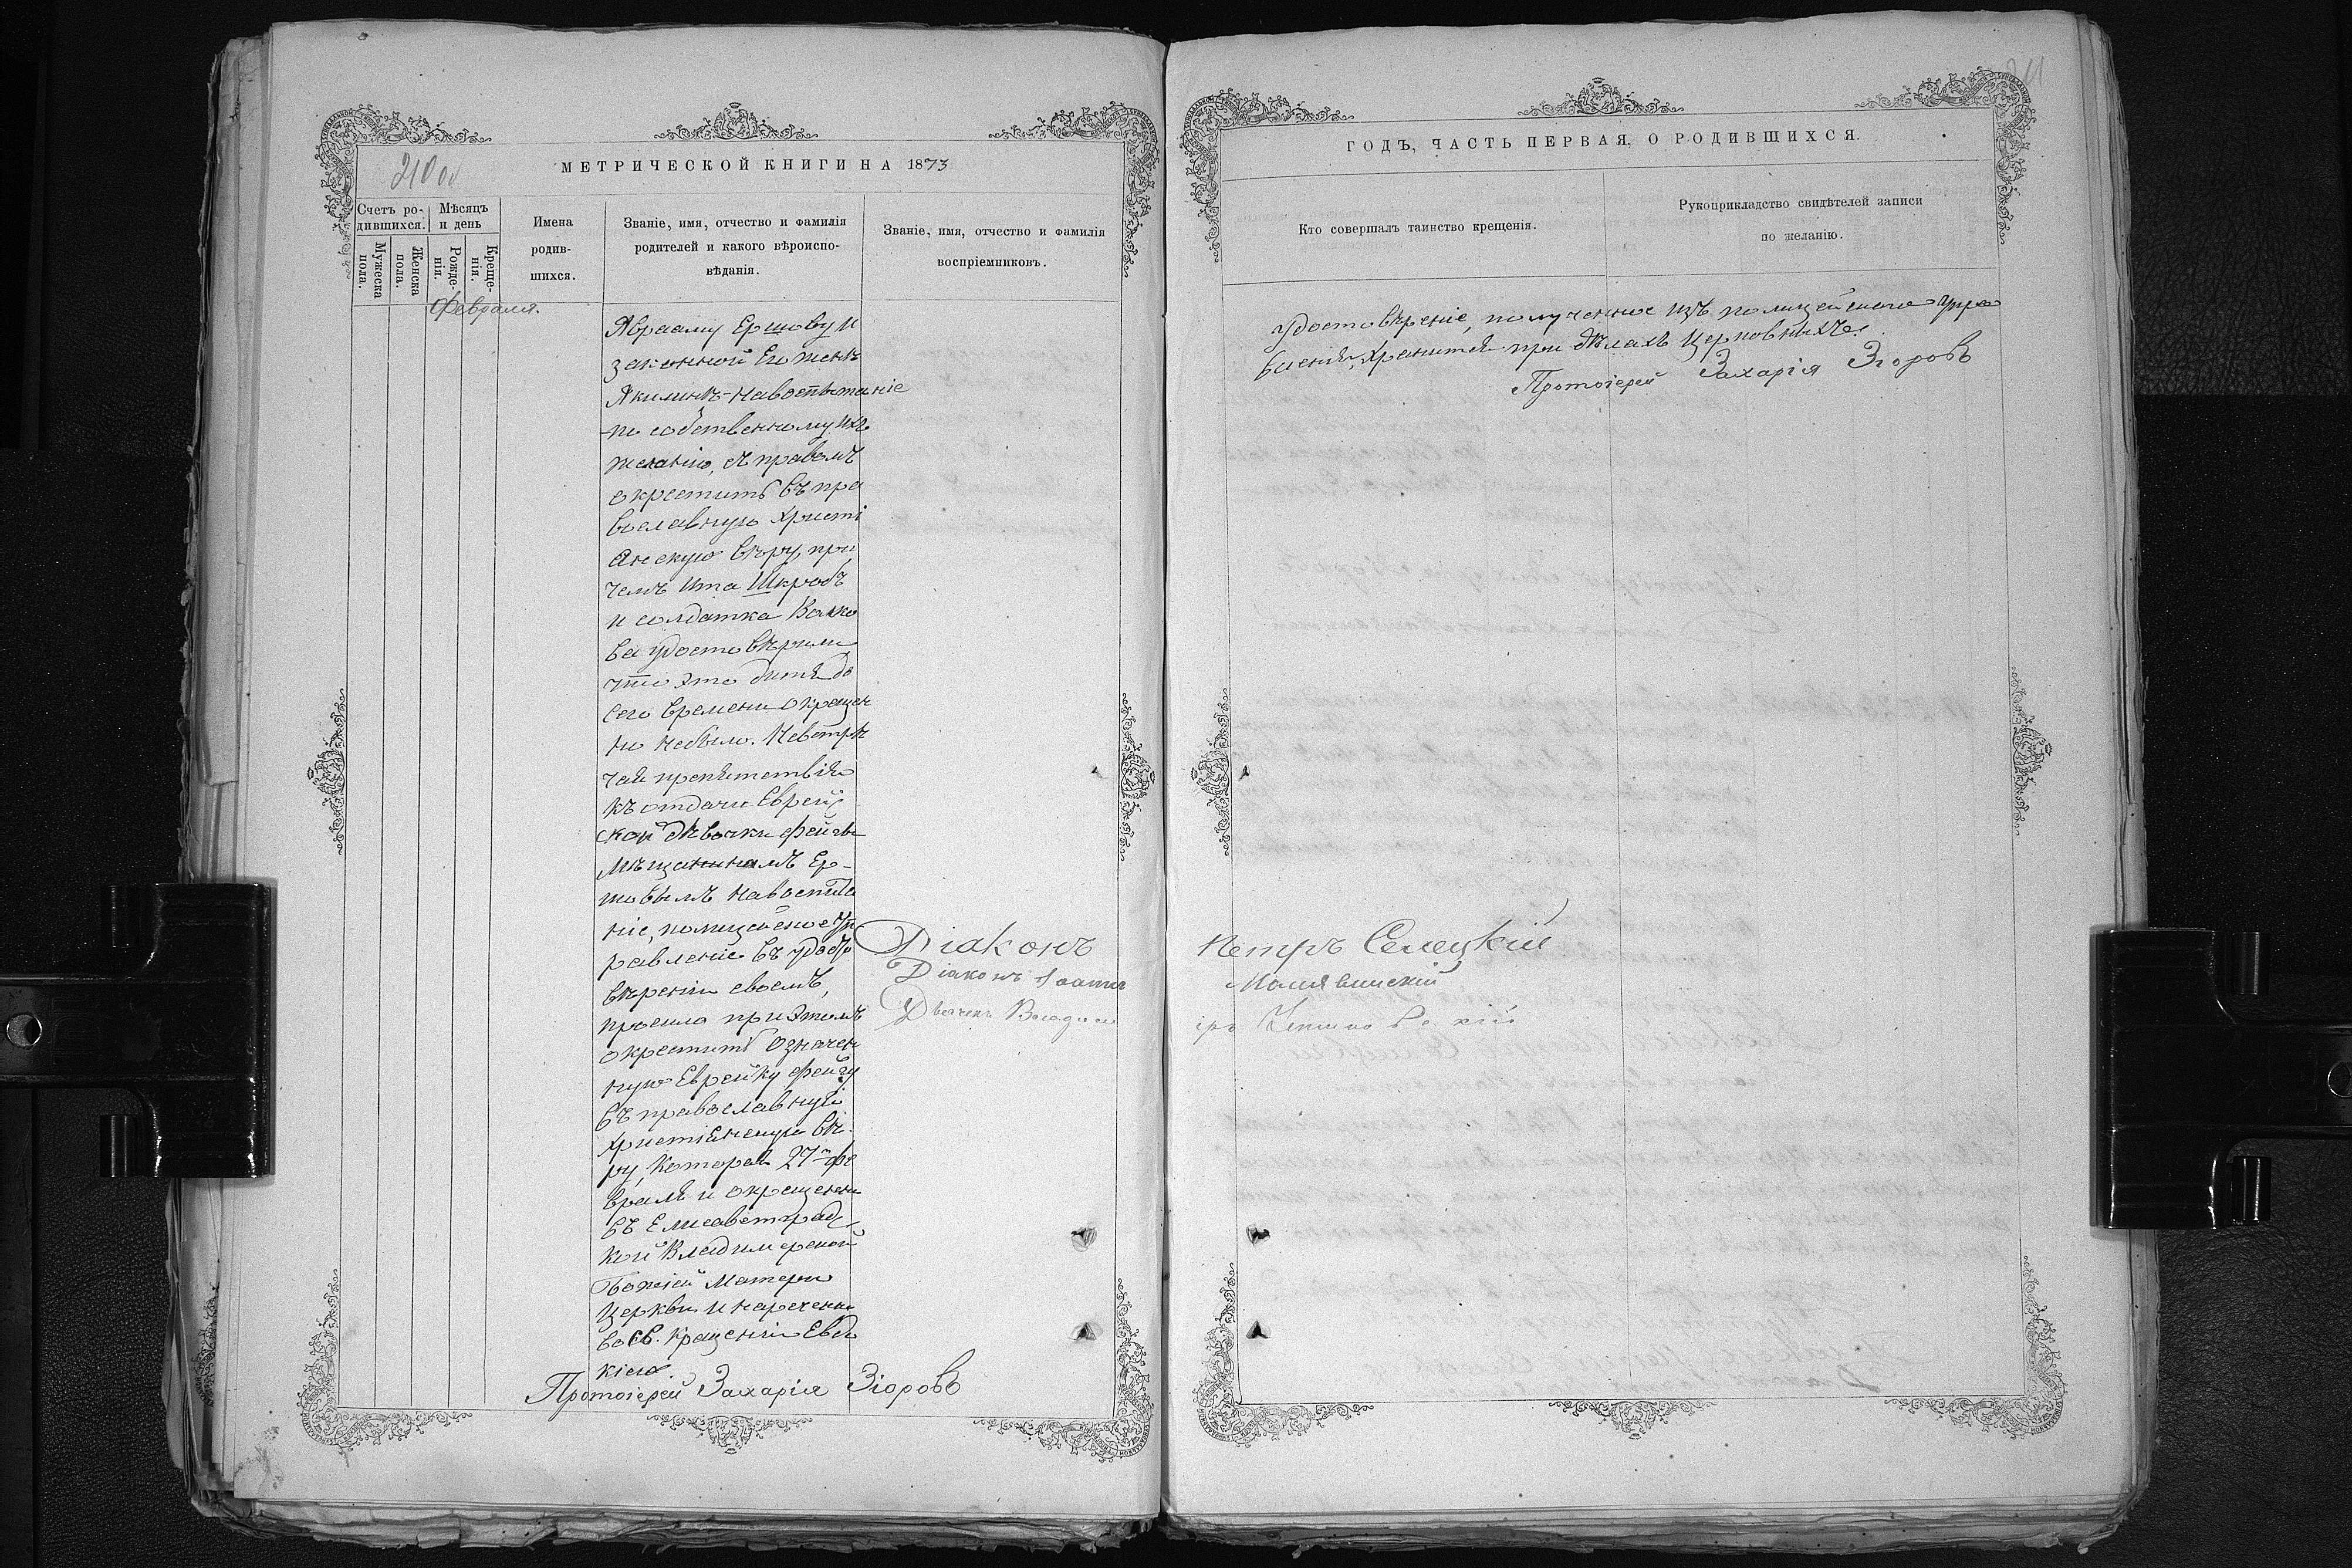 210 об
МЕТРИЧЕСКОЙ КНИГИ НА 1873
Счетъ ро-
дившихся.
Мѣсяцъ
и день
Мужеска
пола.
Женска
пола.
Рожде-
нія.
Креще-
нія.
Имена
родив-
шихся.
Званіе, имя, отчество и фамилія
родителей и какого вѣроиспо-
вѣданія.
Званіе, имя, отчество и фамилія
воспріемниковъ.
Февраля.
Авраому Ершову и
законной Его женѣ
Акилинѣ - На воспытаніе
по собственному ихъ
желанію, съ правомъ
окрестить въ пра
вославную Христі
анскую вѣру, при
чемъ Ита Шкробъ
и солдатка Волко
ва удостовѣрили
что это дитя до
сего времени окрещен
но небыло. Невстрѣ
чая препятствія
къ отдачи Еврейс
кой дѣвочки Фейги
Мѣщанинамъ Ер-
шовымъ на воспита
ніе, полицейское Уп
равленіе въ удосто
вѣреніи своемъ,
просило при этомъ
окрестить означен
ную Еврейку Фейгу
въ православную
Христіанскую вѣ
ру, которая 27го фе
враля и окрещенна
въ Елисаветградс
кой Владимерской
Божіей Матери
Церкви и нареченна
во Св. Крещеніи Евдо
кіею.
Протоіерей Захарія Згоровъ
Діаконъ
Діаконъ Іоаннъ
ГОДЪ, ЧАСТЬ ПЕРВАЯ, О РОДИВШИХСЯ.
Кто совершалъ таинство крещенія.
Рукоприкладство свидѣтелей записи
по желанію.
Удостовѣреніе, полученное изъ полицейскаго Упра
вленія, хранится при дѣлахъ Церковныхъ.
Протоіерей Захарія Згоровъ
Петръ Селецкій